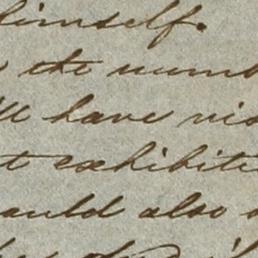 himself.
the numb
have vis
t exhibite
ould also